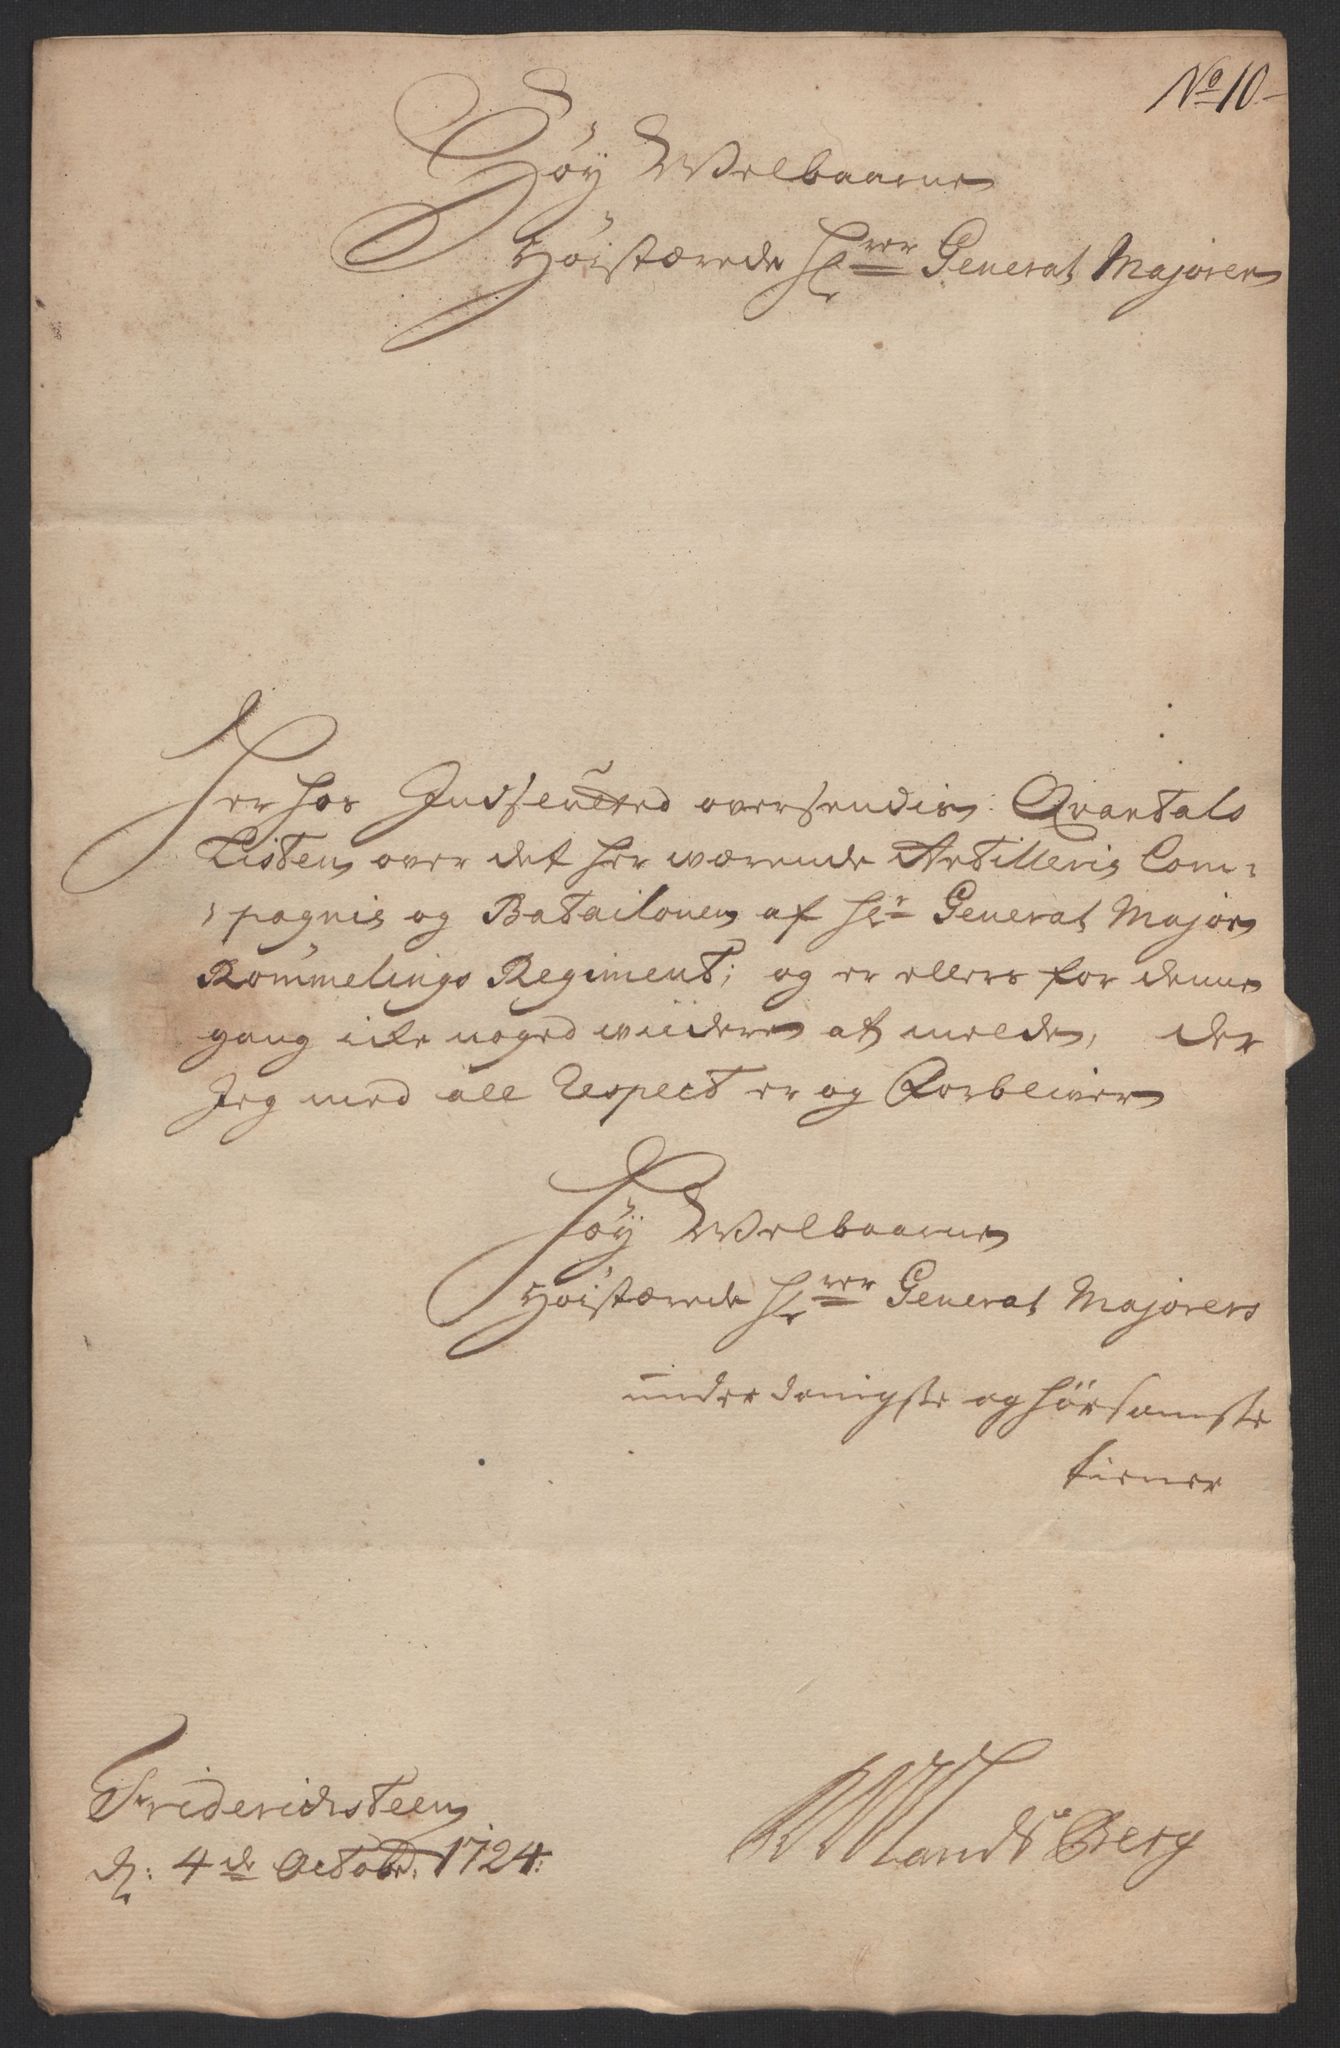 No 10
Høy Welbaarne
Høistærede Hrer General Majoren
Her hos Indsluted oversendis Qvartals
Listen over det her wærende Artilleris Com-
pagnie og Batailonen af Hr General Major
Rømmelings Regiment; og er ellers for denne
gang icke noged wiidere at melde, der
Jeg med all Respect er og Forbliver
Høy Welbaarne
Høistærede Hrer General Majorers
underdanigste og hørsamste
tiener
Friderichsteen
d: 4de Octobr: 1724:
Landsberg